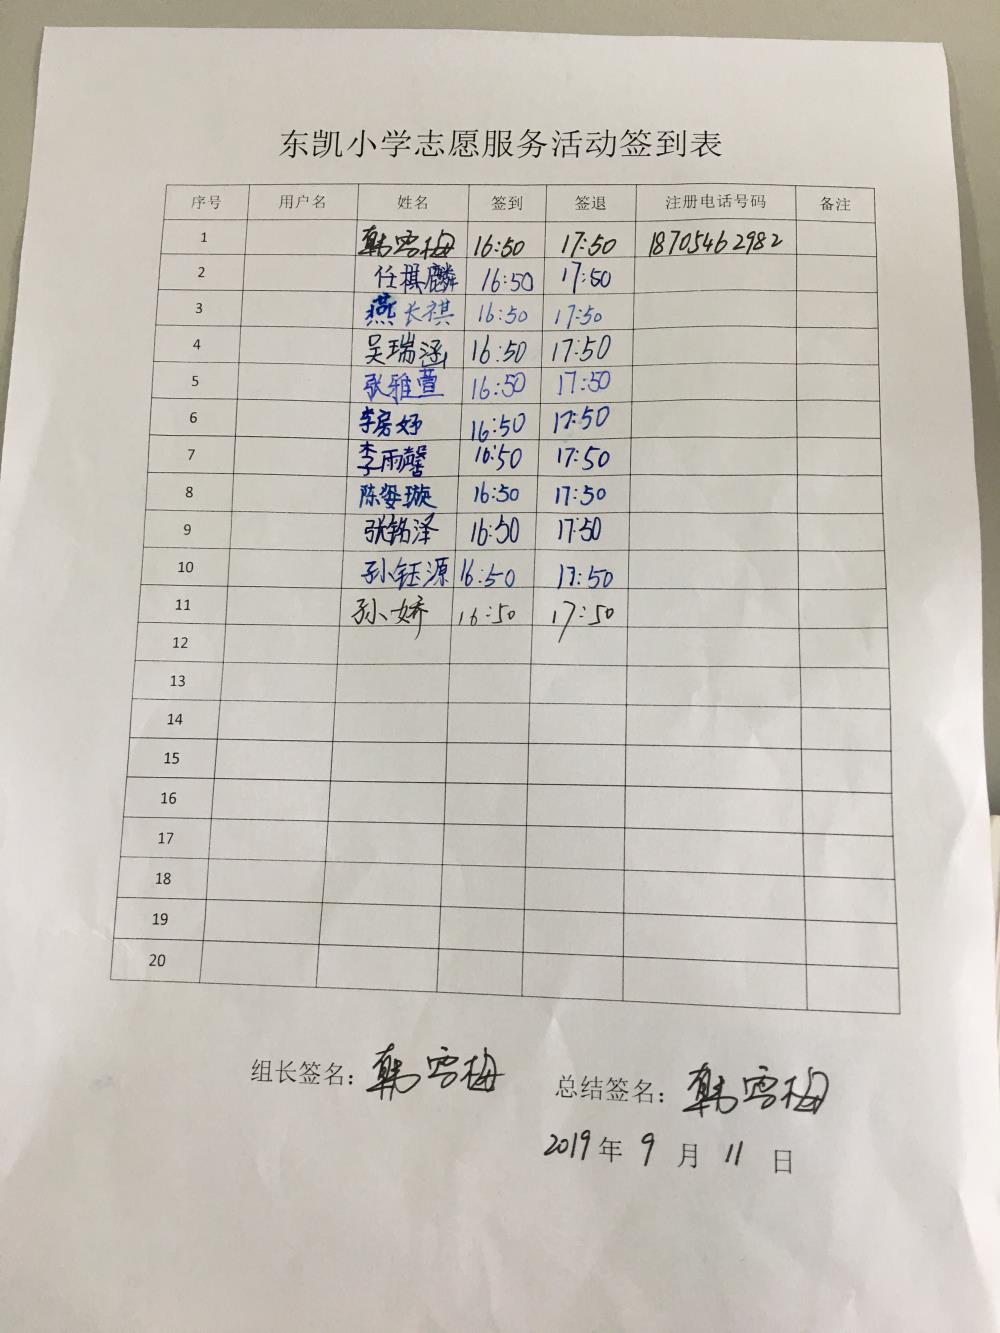 东凯小学志愿服务活动签到表
序号 用户名 姓名 签到 签退 注册电话号码 备注
1 韩雪梅 16:50 17:50 18705462982
2 任祺麟 16:50 17:50
3 燕长祺 16:50 17:50
4 吴瑞涵 16:50 17:50
5 张雅萱 16:50 17:50
6 李房妤 16:50 17:50
7 李雨馨 16:50 17:50
8 陈姿璇 16:50 17:50
9 张铭泽 16:50 17:50
10 孙钰源 16:50 17:50
11 孙娇 16:50 17:50
12
13
14
15
16
17
18
19
20
组长签名：韩雪梅
总结签名：韩雪梅
2019年9月11日